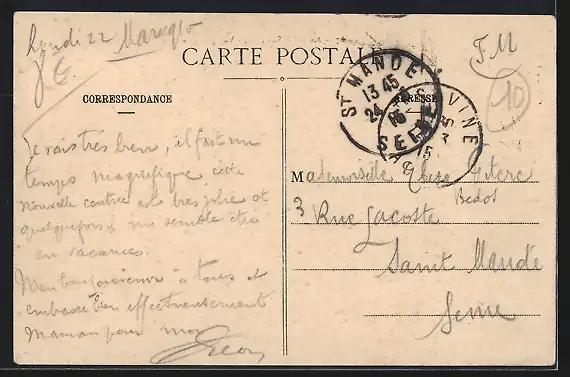 Lundi 22 Mars 1915
CARTE POSTALE
F M
10
CORRESPONDANCE
ADRESSE
ST MANDÉ
13 45
24
15
SEINE
VINE
Je vais très bien, il fait un
temps magnifique cette
nouvelle contrée est très jolie et
quelquefois il me semble être
en vacances.
Mon bon souvenir à tous et
embrasse bien affectueusement
Maman pour moi
Léon
Mademoiselle Elisa
Bedos
3 Rue Lacoste
Saint Mandé
Seine